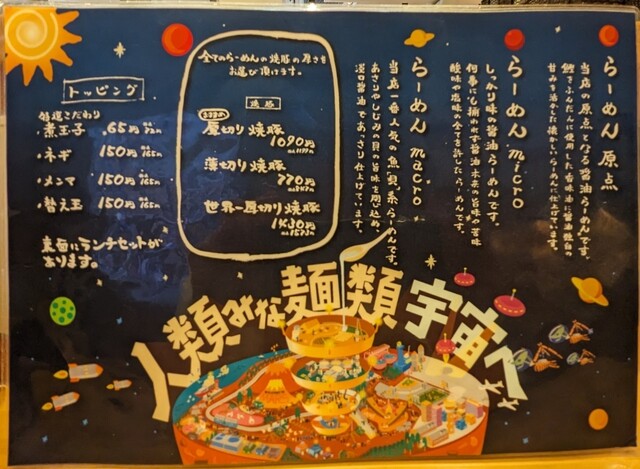 らーめん 原点
当店の原点となる醤油らーめんです。
鰹をふんだんに使用した香味油に醤油独自の
甘みを活かした懐かしいらーめんに仕上げています。
らーめん micro
しっかり味の醤油らーめんです。
何事にも捕われず醤油本来の旨味・苦味
酸味や塩味の全てを許したらーめんです。
らーめん macro
当店一番人気の魚貝系らーめんです。
あさりやしじみの貝の旨味を閉じ込め、
淡口醤油であっさり仕上げています。
全てのらーめんの焼豚の厚さを
お選び頂けます。
焼豚
厚切り焼豚
1090円
薄切り焼豚
770円
世界一厚切り焼豚
1430円
トッピング
煮玉子 65円
・ネギ 150円 税込165円
・メンマ 150円 税込165円
・替え玉 150円 税込165円
裏面にランチセットが
あります。
人類みな麺類宇宙へ